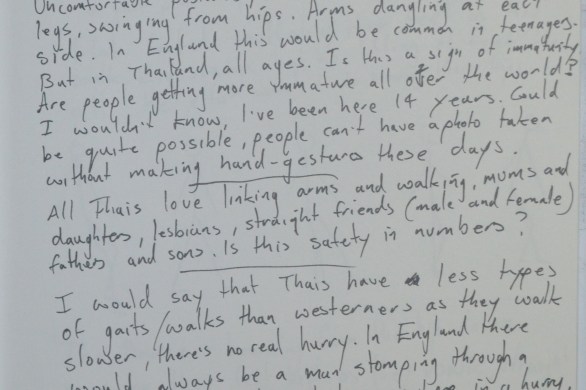 Uncomfortable
legs, swinging from hips. Arms dangling at each
side. In England this would be common in teenagers.
But in Thailand, all ages. Is this a sign of immaturity?
Are people getting more immature all over the world?
I wouldn't know, I've been here 14 years. Could
be quite possible, people can't have a photo taken
without making hand-gestures these days.
All Thais love linking arms and walking, mums and
daughters, lesbians, straight friends (male and female)
fathers and sons. Is this safety in numbers?
I would say that Thais have less types
of gaits/walks than westerners as they walk
slower, there's no real hurry. In England there
would always be a man stomping through a
in a hurry,